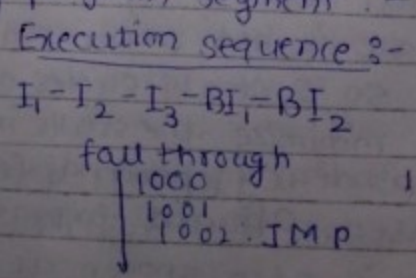 segment.
Execution sequence :-
I₁ - I₂ - I₃ - BI₁ - BI₂
fall through
1000
1001
1002 : JMP